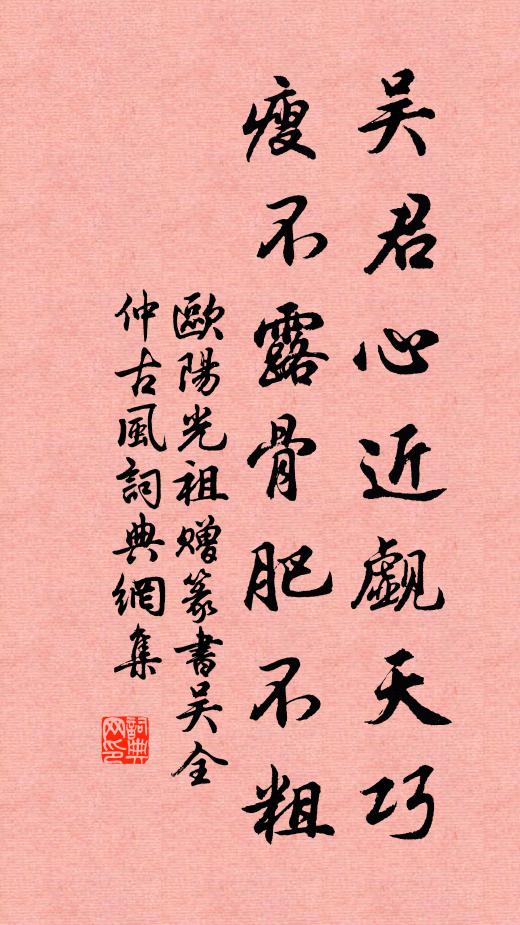 吴君心近觑天巧
瘦不露骨肥不粗
歐陽光祖赠篆書吴全
仲古風詞典網集
詞典
网印